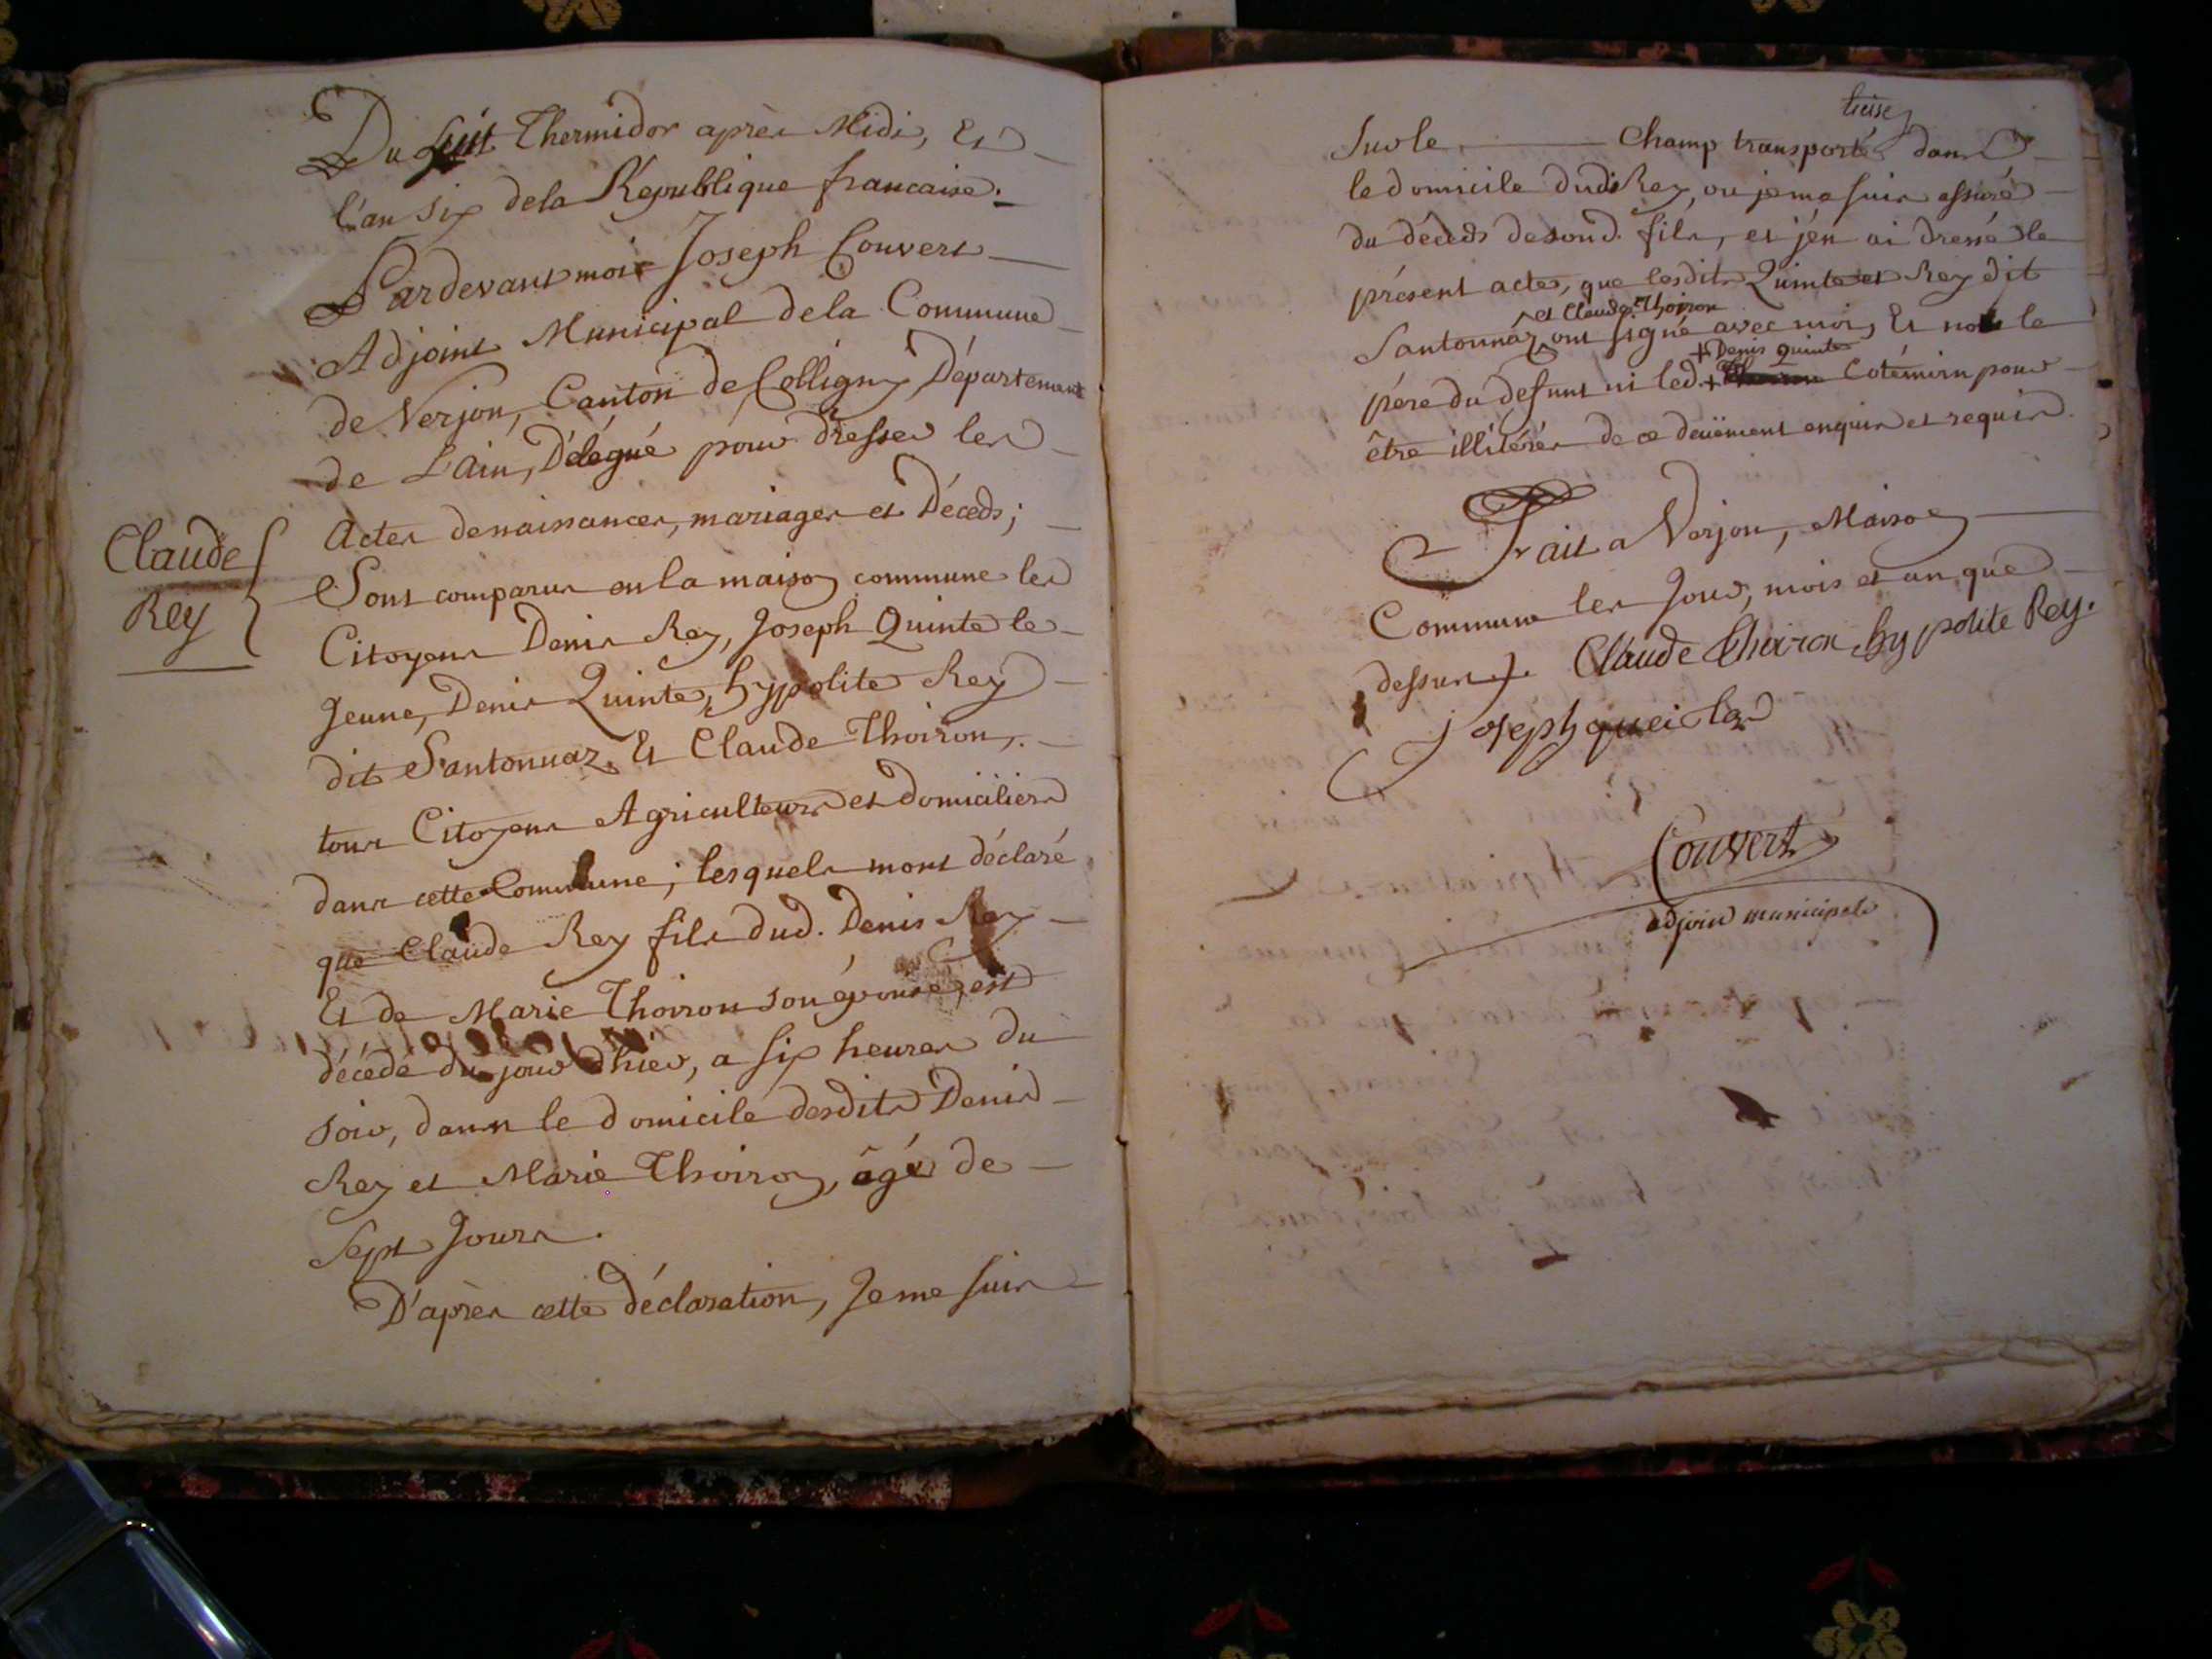 Du huit Thermidor après Midi, Et
l'an six dela République francaise.
Pardevant moi Joseph Couvert
Adjoint Municipal dela Commune
de Verjon, Canton de Colligny, Département
de L'ain, Délégué pour dresser les
Actes denaissances, mariages et Décèds;
Claude
Rey
Sont comparus en la maison commune les
Citoyens Denis Rey, Joseph Quinte le
Jeune, Denis Quinte, hypolite Rey
dit Santonnaz, Et Claude Thoiron,
tous Citoyens Agriculteurs et domiciliers
dans cette Commune; lesquels mont déclaré
que Claude Rey fils dud. Denis Rey
Et de Marie Thoiron son épouse, est
décédé du jour dhier, a six heures du
soir, dans le domicile desdits Denis
Rey et Marie Thoiron, âgé de
Sept Jours.
D'après cette déclaration, Je me suis
treise
Sur le Champ transporté dans
le domicile dudit Rey, ou je me suis assuré
du décèds de sond. fils, et j'en ai dressé le
présent acte, que lesdits Quinte et Rey dit
et Claude Thoiron
Santonnaz ont signé avec moi, Et non le
+ Denis quinte
père du defunt ni led. + Cotémoin pour
être illitérés de ce deüement enquis et requis.
Fait a Verjon, Maison
Commune les Jour, mois et an que
dessus. Claude thoiron hypolite Rey.
joseph queinte
Couvert
adjoin municipal